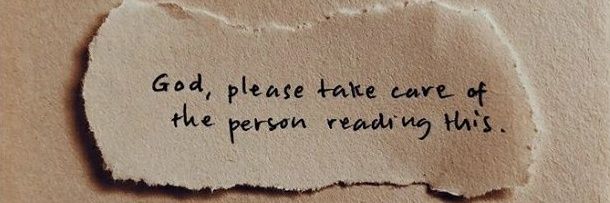 God, please take care of
the person reading this.